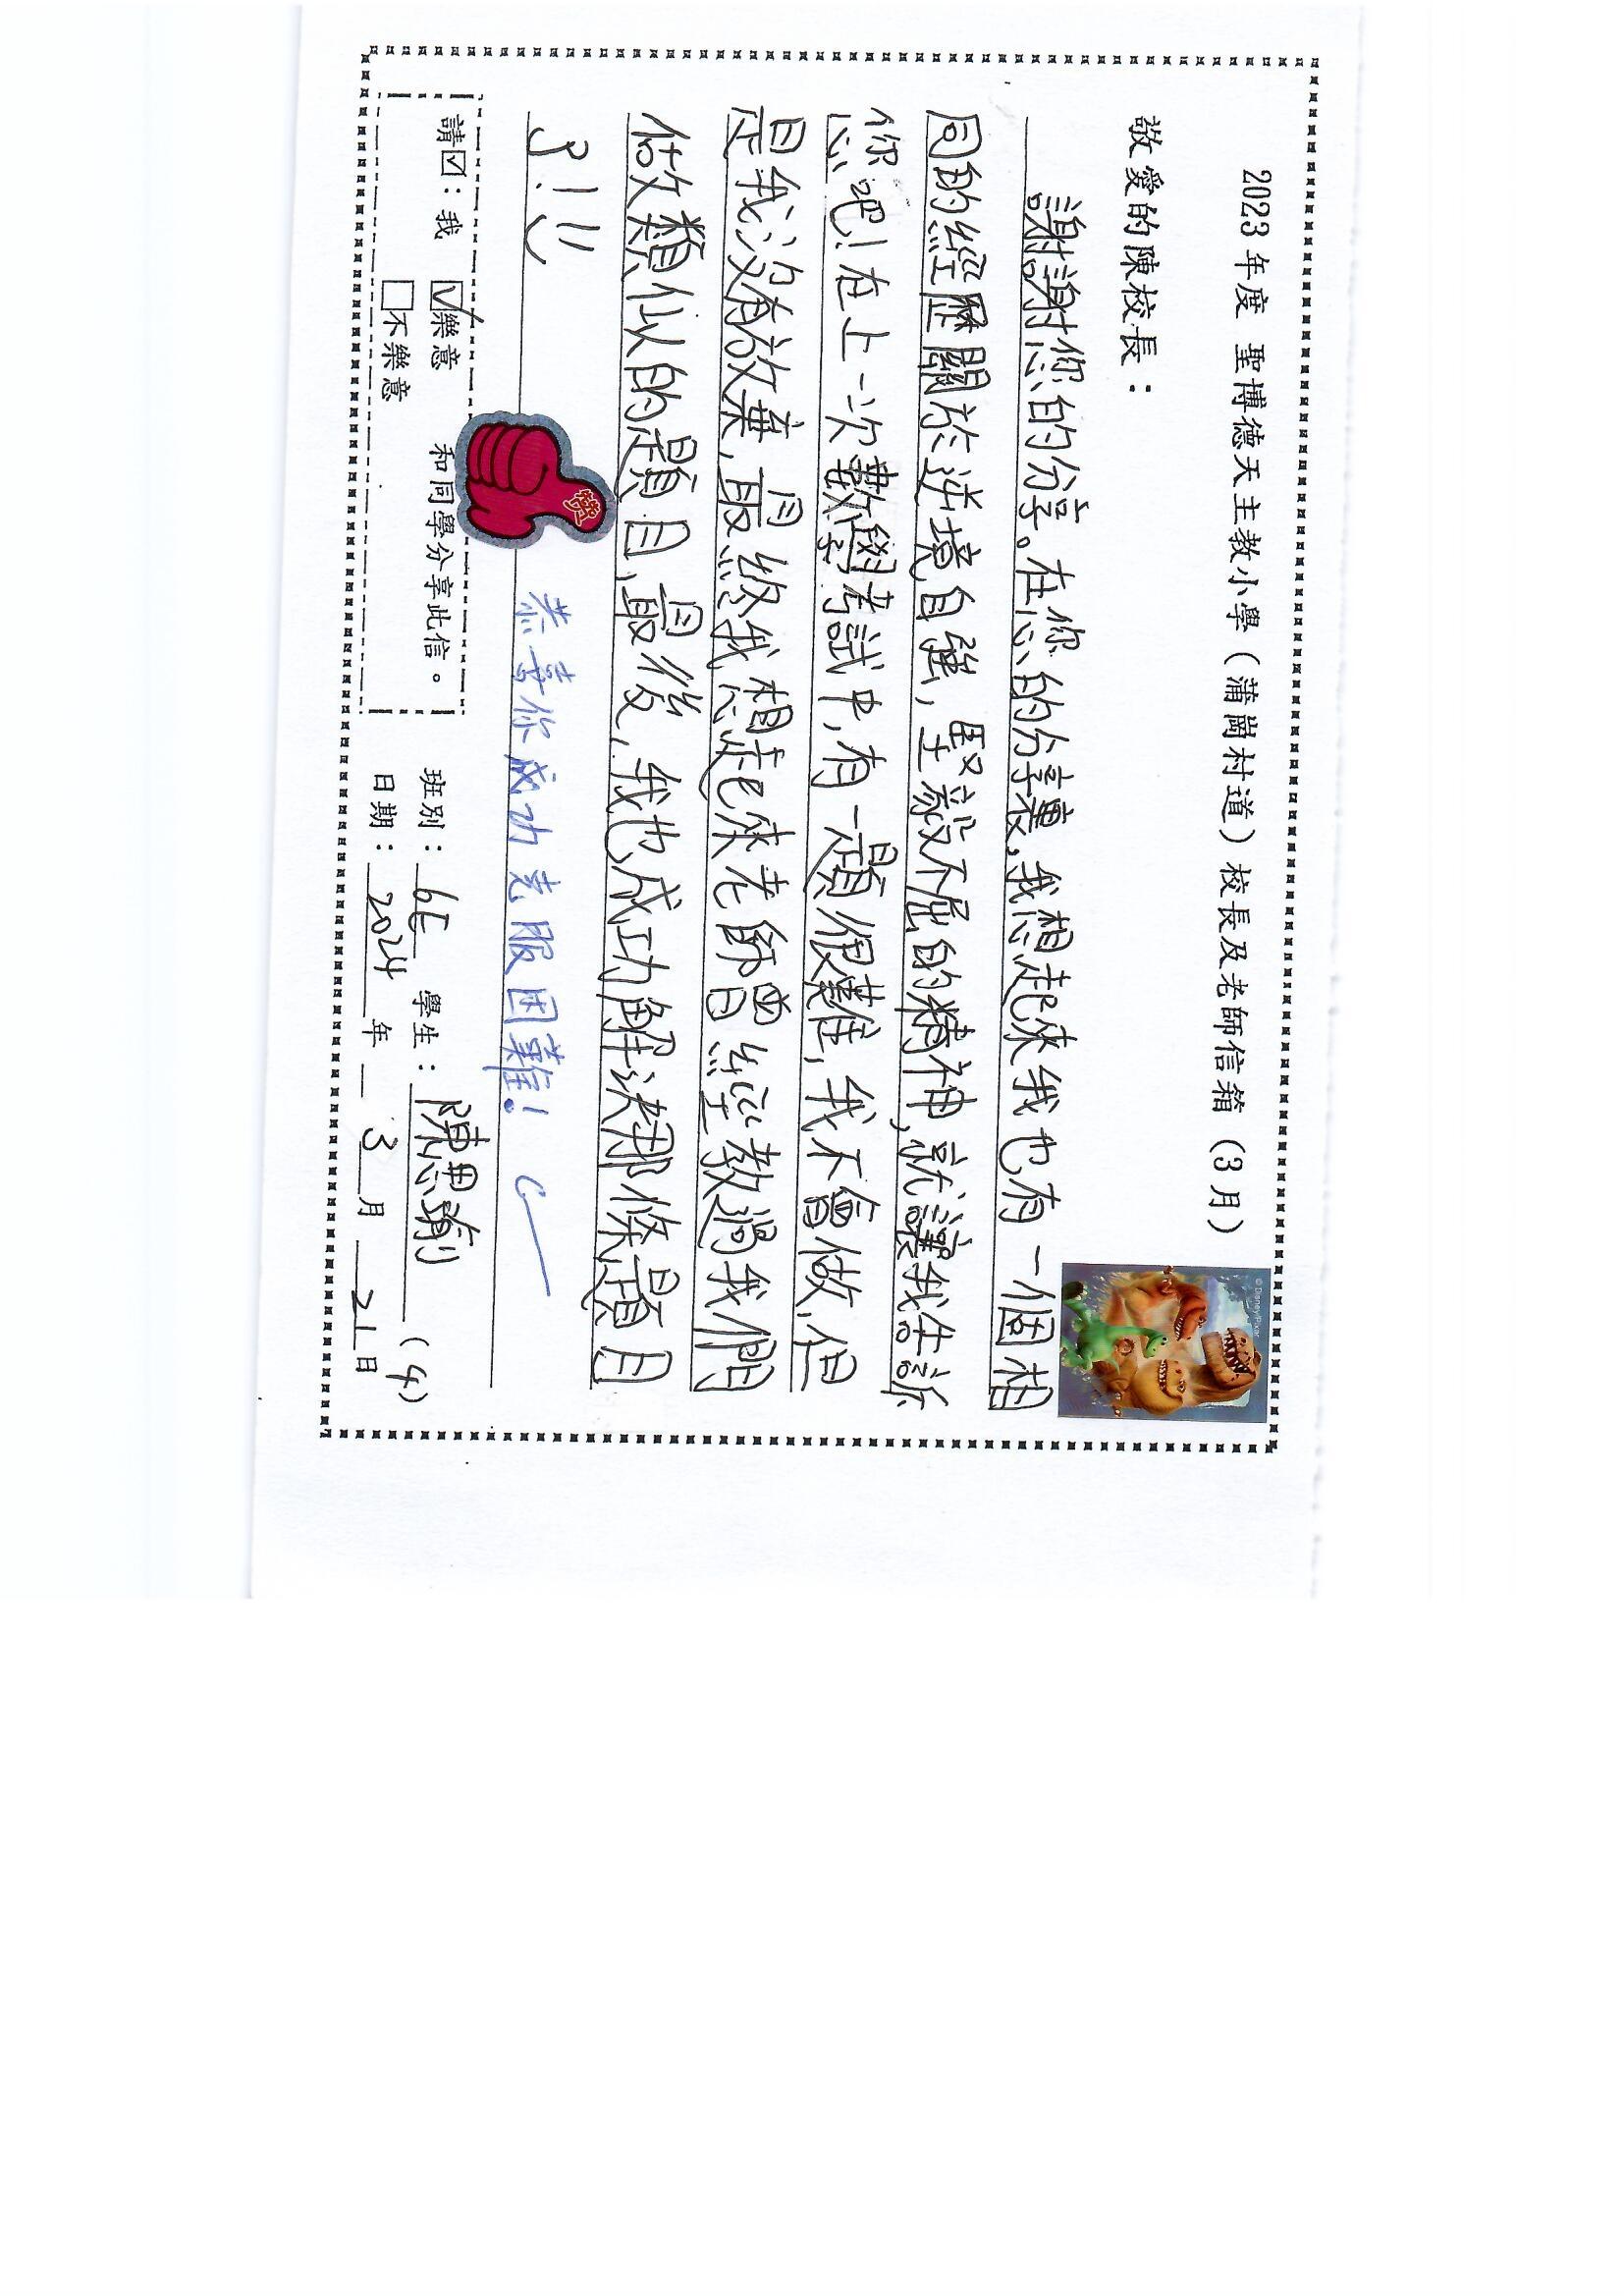 2023 年度 聖博德天主教小學（蒲崗村道）校長及老師信箱（3 月）
©Disney/Pixar
敬愛的陳校長：
謝謝您的分享。在您的分享裏,我想起來我也有一個相
同的經歷關於逆境自強,堅毅不屈的精神,就讓我告訴
您吧!在上一次數學考試中,有一題很難,我不會做,但
是我沒有放棄,最終我想起來老師曾經教過我們
做類似的題目,最後,我也成功解決那條題目
了!
讚
恭喜你成功克服困難!
請☑：我 ☑樂意 和同學分享此信。
□不樂意
班別：6E 學生：陳思瑜 (4)
日期：2024 年 3 月 21 日